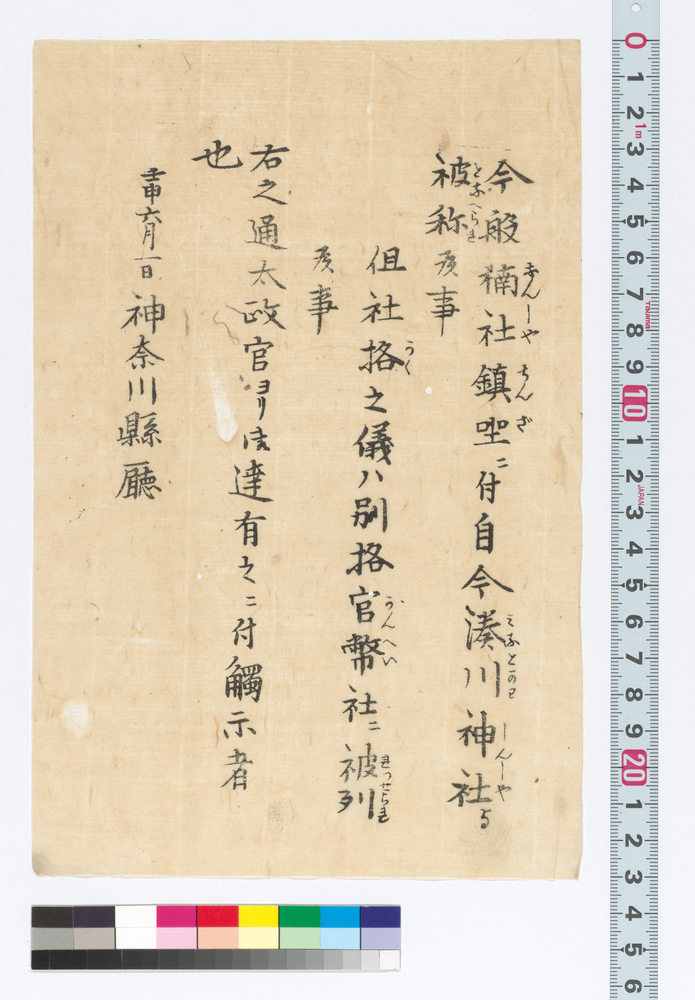 今般楠社鎮坐ニ付自今湊川神社与
被称候事
但社格之儀ハ別格官幣社ニ被列
候事
右之通太政官ヨリ御達有之ニ付觸示者
也
壬申六月一日 神奈川縣廳